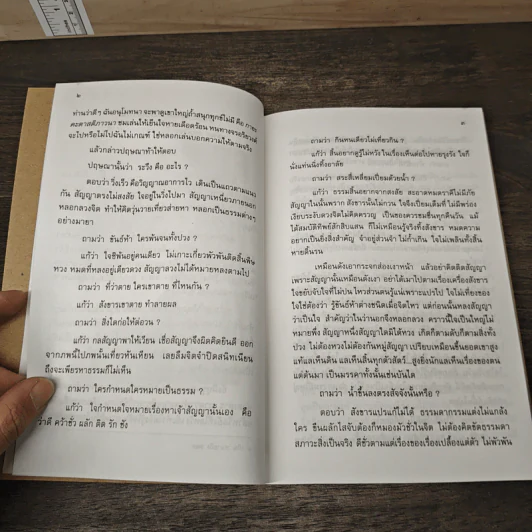 ๒
ท่านว่าดีๆ ฉันอนุโมทนา จะพาดูเขาใหญ่ถ้ำสนุกทุกข์ไม่มี คือ
คะตาสติภาวนา ชมเล่นให้เย็นใจหายเดือดร้อน หนทางจรอริยวงศ์
จะไปหรือไม่ไปฉันไม่เกณฑ์ ใช่หลอกเล่นบอกความให้ตามจริง
แล้วกล่าวปฤษณาท้าให้ตอบ
ปฤษณานั้นว่า ระวิ่ง คือ อะไร ?
ตอบว่า วิ่งเร็ว คือวิญญาณอาการไว เดินเป็นแถวตามแนว
กัน สัญญาตรงไม่สงสัย ใจอยู่ในวิ่งไปมา สัญญาเหนี่ยวภายนอก
หลอกลวงจิต ทำให้คิดวุ่นวายเที่ยวส่ายหา หลอกเป็นธรรมต่างๆ
อย่างมายา
ถามว่า ขันธ์ห้า ใครพ้นจนทั้งปวง ?
แก้ว่า ใจซิพ้นอยู่คนเดียว ไม่เกาะเกี่ยวพัวพันติดสิ้นพิษ
หวง หมดที่หลงอยู่เดียวดวง สัญญาลวงไม่ได้หมายหลงตามไป
ถามว่า ที่ว่าตาย ใครเขาตาย ที่ไหนกัน ?
แก้ว่า สังขารเขาตาย ทำลายผล
ถามว่า สิ่งใดก่อให้ต่อวน ?
แก้ว่า กลสัญญาพาให้เวียน เชื่อสัญญาจึงผิดคิดยินดี ออก
จากภพนี้ไปภพนั้นเที่ยวหันเหียน เลยลืมจิตจำปิดสนิทเนียน
ถึงจะเพียรหาธรรมก็ไม่เห็น
ถามว่า ใครกำหนดใครหมายเป็นธรรม ?
แก้ว่า ใจกำหนดใจหมายเรื่องหาเจ้าสัญญานั้นเอง คือ
ว่าดี คว้าชั่ว ผลัก ติด รัก ชัง
๓
ถามว่า กินหนเดียวไม่เที่ยวกิน ?
แก้ว่า สิ้นอยากดูรู้ไม่หวังในเรื่องเห็นต่อไปหายรุงรัง ใจก็
นั่งแท่นนิ่งทิ้งอาลัย
ถามว่า สระสี่เหลี่ยมเปี่ยมด้วยน้ำ ?
แก้ว่า ธรรมสิ้นอยากจากสงสัย สะอาดหมดราคีไม่มีภัย
สัญญาในนั้นพราก สังขารนั้นไม่กวน ใจจึงเปี่ยมเต็มที่ ไม่มีพร่อง
เงียบระงับดวงจิตไม่คิดครวญ เป็นของควรชมชื่นทุกคืนวัน แม้
ได้สมบัติทิพย์สักสิบแสน ก็ไม่เหมือนรู้จริงทิ้งสังขาร หมดความ
อยากเป็นยิ่งสิ่งสำคัญ จำอยู่ส่วนจำ ไม่ก้ำเกิน ใจไม่เพลินทั้งสิ้น
หายดิ้นรน
เหมือนดังเอากระจกส่องเงาหน้า แล้วอย่าคิดติดสัญญา
เพราะสัญญานั้นเหมือนดังเงา อย่าได้เมาไปตามเรื่องเครื่องสังขาร
ใจขยับจับใจที่ไม่ปน ไหวส่วนตนรู้แน่เพราะแปรไป ใจไม่เที่ยงของ
ใจใช่ต้องว่า รู้ขันธ์ห้าต่างชนิดเมื่อจิตไหว แต่ก่อนนั้นหลงสัญญา
ว่าเป็นใจ สำคัญว่าในว่านอกจึงหลอกลวง คราวนี้ใจเป็นใหญ่ไม่
หมายพึ่ง สัญญาหนึ่งสัญญาใดมิได้หวง เกิดก็ตามดับก็ตามสิ่งทั้ง
ปวง ไม่ต้องหวงไม่ต้องกันหมู่สัญญา เปรียบเหมือนขึ้นยอดเขาสูง
แท้แลเห็นดิน แลเห็นสิ้นทุกตัวสัตว์...สูงยิ่งนักแลเห็นเรื่องของตน
แต่ต้นมา เป็นมรรคาทั้งนั้นเช่นบันได
ถามว่า น้ำขึ้นลงตรงสัจจังนั้นหรือ ?
ตอบว่า สังขารแปรแก้ไม่ได้ ธรรมดากรรมแต่งไม่แกล้ง
ใคร ขืนผลักไสจับต้องก็หมองมัวชั่วในจิต ไม่ต้องคิดขัดธรรมดา
สภาวะสิ่งเป็นจริง ดีชั่วตามแต่เรื่องของเรื่องเปลื้องแต่ตัว ไม่พัวพัน